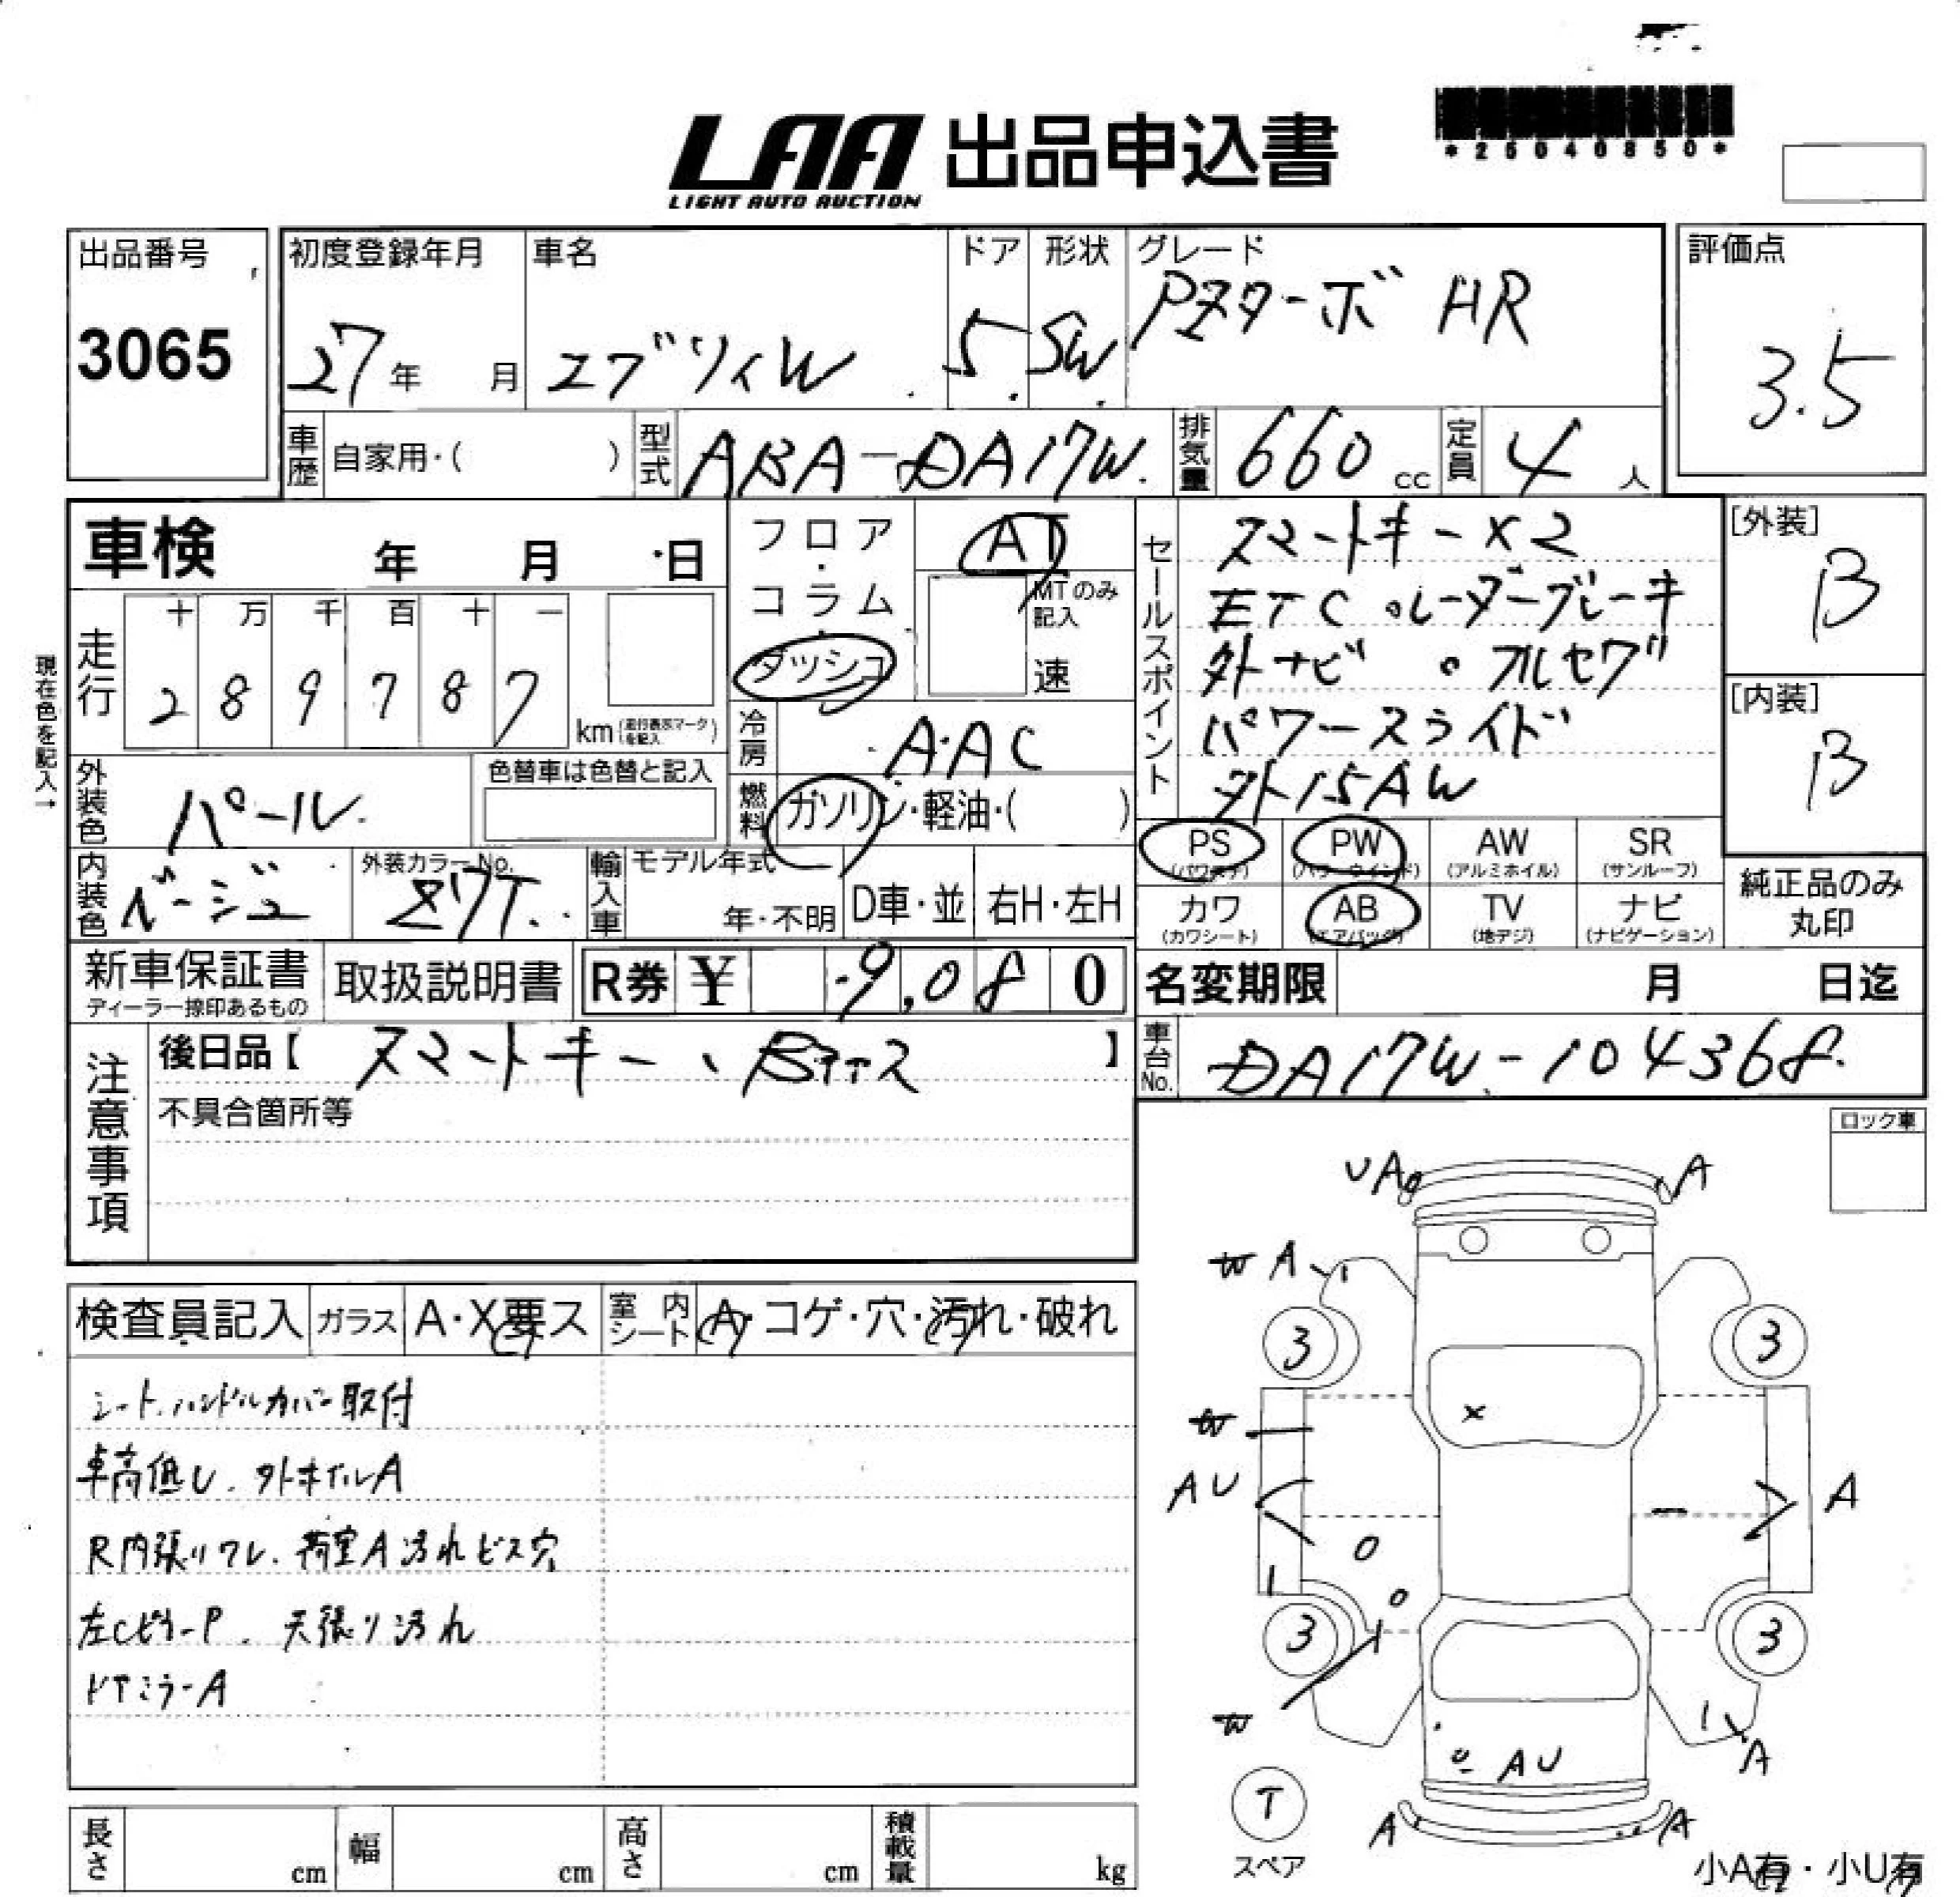 *25040850*
LAA 出品申込書
LIGHT AUTO AUCTION
出品番号
3065
初度登録年月
27年 月
車名
エブリィW
ドア
5
形状
SW
グレード
PZターボ HR
評価点
3.5
車歴 自家用・( )
型式 ABA-DA17W
排気量 660 cc
定員 4 人
車検 年 月 日
フロア・コラム
ダッシュ
AT
MTのみ記入
速
走行
十 万 千 百 十 一
2 8 9 7 8 7
km (走行表示マークを記入)
現在色を記入→
冷房 AAC
燃料 ガソリン・軽油・( )
外装色 パール
色替車は色替と記入
内装色 ベージュ
外装カラーNo.
Z7T
輸入車
モデル年式
年・不明
D車・並
右H・左H
セールスポイント
スマートキー×2
ETC 。レーダーブレーキ
外ナビ 。フルセグ
パワースライド
外15AW
[外装]
B
[内装]
B
PS (パワステ)
PW (パワーウインド)
AW (アルミホイル)
SR (サンルーフ)
カワ (カワシート)
AB (エアバッグ)
TV (地デジ)
ナビ (ナビゲーション)
純正品のみ丸印
新車保証書
ディーラー捺印あるもの
取扱説明書
R券 ¥ 9,080
名変期限 月 日迄
注意事項
後日品【 スマートキー、 】
不具合箇所等
車台No. DA17W-104368
ロック車
検査員記入
ガラス A・X 要ス
室内シート A・コゲ・穴・汚れ・破れ
シート、ハンドルカバー取付
車高低し、外ホイルA
R内張りワレ、荷室A汚れビス穴
左CピラーP、天張り汚れ
ドアミラーA
UA A
W A
3 3
W
×
AU A
3 3
W
AU
A
T
スペア
A A
長さ cm
幅 cm
高さ cm
積載量 kg
小A有・小U有